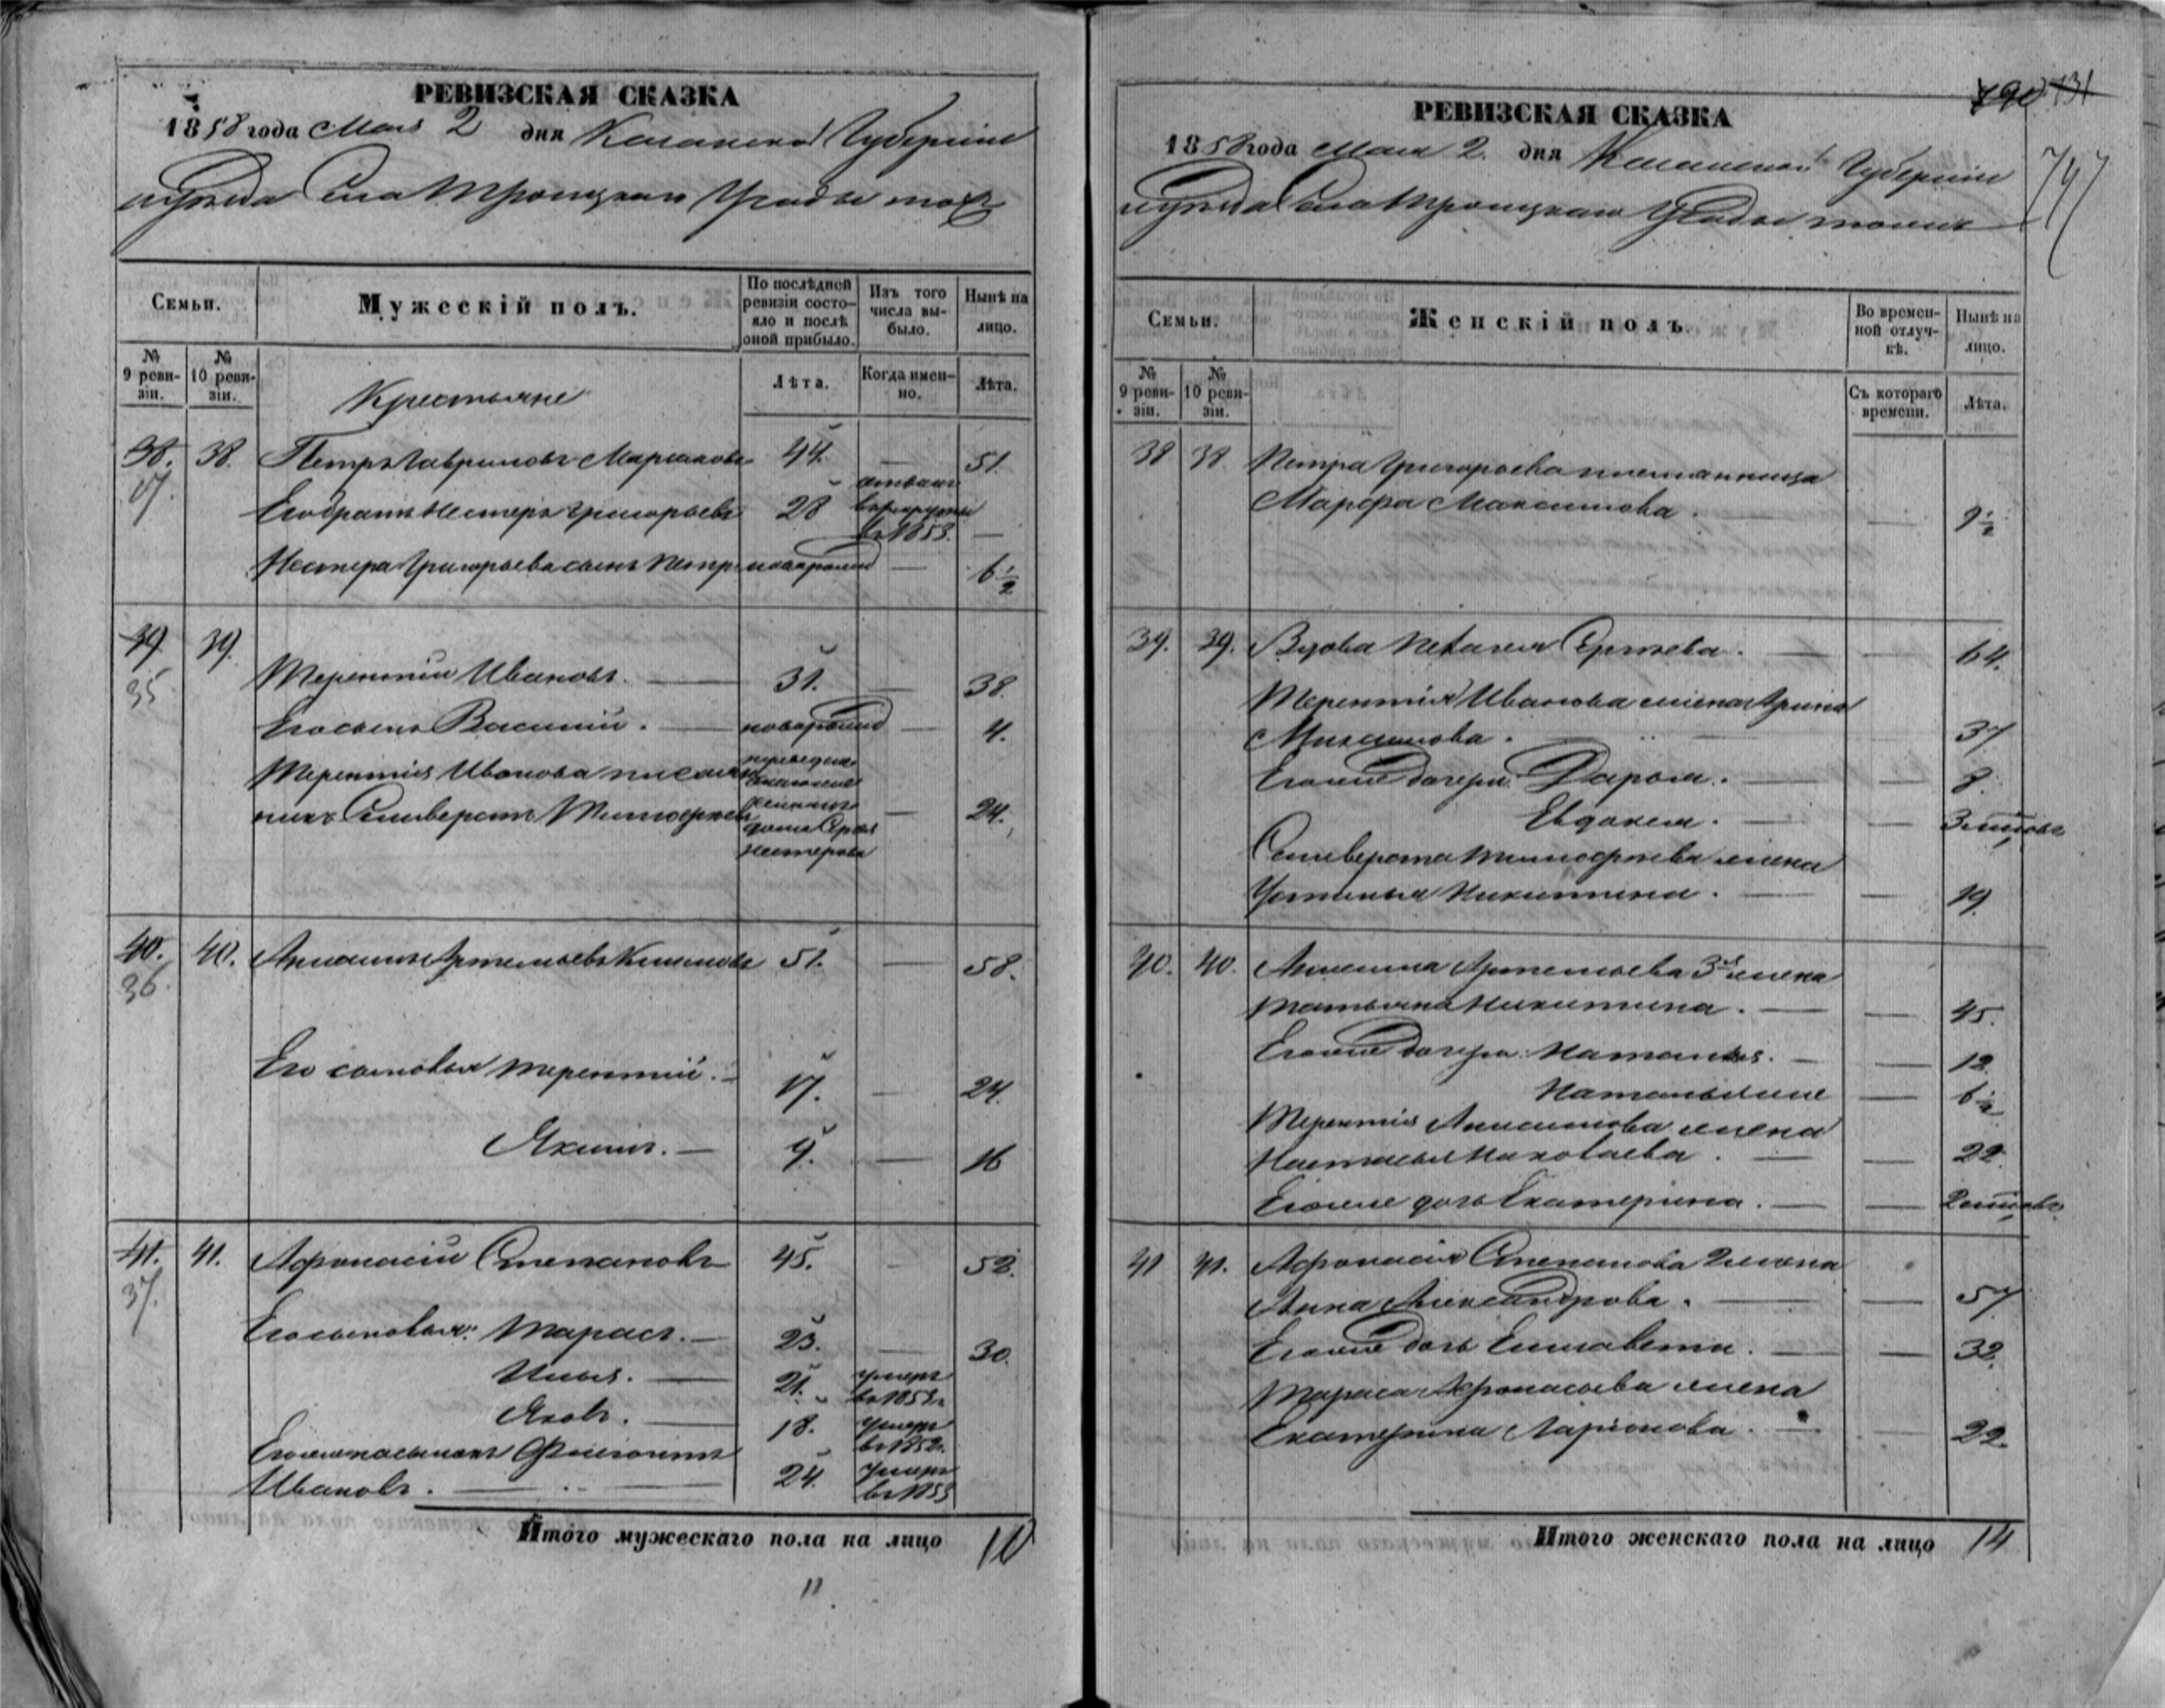 РЕВИЗСКАЯ СКАЗКА
1858 года Мая 2 дня Казанской Губернии
уѣзда Села Троицкаго
Семьи.
Мужескій полъ.
По послѣдней ревизіи состояло и послѣ оной прибыло.
Изъ того числа выбыло.
Нынѣ на лицо.
№ 9 ревизіи.
№ 10 ревизіи.
Крестьяне
Лѣта.
Когда именно.
Лѣта.
38. 38. Петръ Гавриловъ 44. — 51.
17.
Его братъ Нестеръ Григорьевъ 28 въ рекруты въ 1853. —
Нестера Григорьева сынъ Петръ новорожд — 6 1/2
39. 39.
35
Терентій Ивановъ. — 31. — 38.
Его сынъ Василий. — новорожд — 4.
Терентія Иванова племян
никъ Селиверстъ Тимофеевъ — 24.
Нестерова
40. 40. Артемьевъ 51. — 58.
36.
Его сыновья Терентий. — 17. — 24.
Якимъ. — 9. — 16
41. 41. Афонасій Степановъ 45. — 52.
37.
Его сыновья: Тарасъ. — 23. — 30.
Илья. — 21. умеръ въ 1853 г.
Яковъ. — 18. умеръ въ 1852 г.
Ивановъ. — 24. умеръ въ 1855
Итого мужескаго пола на лицо 10
11
790 131
747
РЕВИЗСКАЯ СКАЗКА
1858 года Мая 2. дня Казанской Губернии
уѣзда Села Троицкаго
Семьи.
Женскій полъ.
Во временной отлучкѣ.
Нынѣ на лицо.
№ 9 ревизіи.
№ 10 ревизіи.
Съ котораго времени.
Лѣта.
38 38 Петра Григорьева племянница
Марфа Максимова. — 9 1/2
39. 39. Вдова Пелагея Сергѣева. — — 64.
Терентія Иванова жена Арина
Михаилова. — 37
Его же дочери: Дарья. — — 8.
Евдокея. — — 3 мѣсяцовъ
Селиверста Тимофеева жена
Устинья Никитина. — — 19.
40. 40. Артемьева 3я жена
Татьяна Никитина. — — 45.
Его же дочери: Наталья. — — 12.
— 6 1/2
Терентія Анисимова жена
Настасья Николаева. — — 22.
Его же дочь Екатерина. — — 2 мѣсяцовъ
41 41. Афонасія Степанова 2 жена
Анна Александрова. — — 57
Его же дочь Елисавета. — — 32.
Тараса Афонасьева жена
Екатерина Ларіонова. — — 22.
Итого женскаго пола на лицо 14